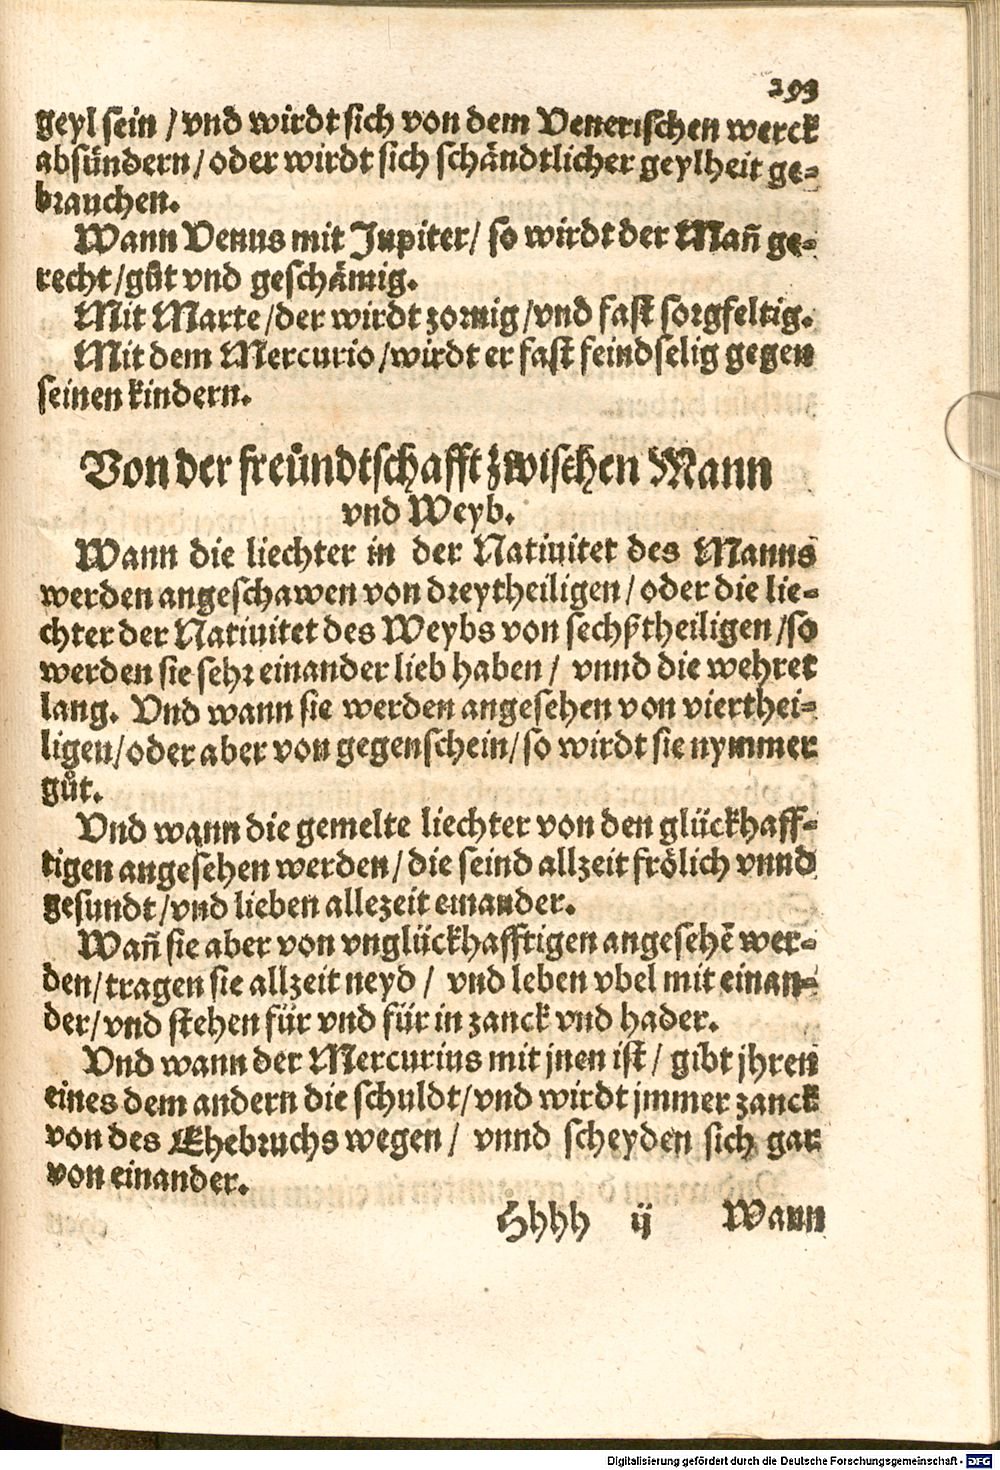 293
geyl sein / vnd wirdt sich von dem Venerischen werck
absündern / oder wirdt sich schändtlicher geylheit ge-
brauchen.
Wann Venus mit Jupiter / so wirdt der Mañ ge-
recht / gůt vnd geschämig.
Mit Marte / der wirdt zornig / vnd fast sorgfeltig.
Mit dem Mercurio / wirdt er fast feindselig gegen
seinen kindern.
Von der freündtschafft zwischen Mann
vnd Weyb.
Wann die liechter in der Natiuitet des Manns
werden angeschawen von dreytheiligen / oder die lie-
chter der Natiuitet des Weybs von sechßtheiligen / so
werden sie sehr einander lieb haben / vnnd die wehret
lang. Vnd wann sie werden angesehen von vierthei-
ligen / oder aber von gegenschein / so wirdt sie nymmer
gůt.
Vnd wann die gemelte liechter von den glückhaff-
tigen angesehen werden / die seind allzeit frölich vnnd
gesundt / vnd lieben allezeit einander.
Wañ sie aber von vnglückhafftigen angesehẽ wer-
den / tragen sie allzeit neyd / vnd leben vbel mit einan-
der / vnd stehen für vnd für in zanck vnd hader.
Vnd wann der Mercurius mit jnen ist / gibt jhren
eines dem andern die schuldt / vnd wirdt jmmer zanck
von des Ehebruchs wegen / vnnd scheyden sich gar
von einander.
Hhhh ij Wann
Digitalisierung gefördert durch die Deutsche Forschungsgemeinschaft - DFG